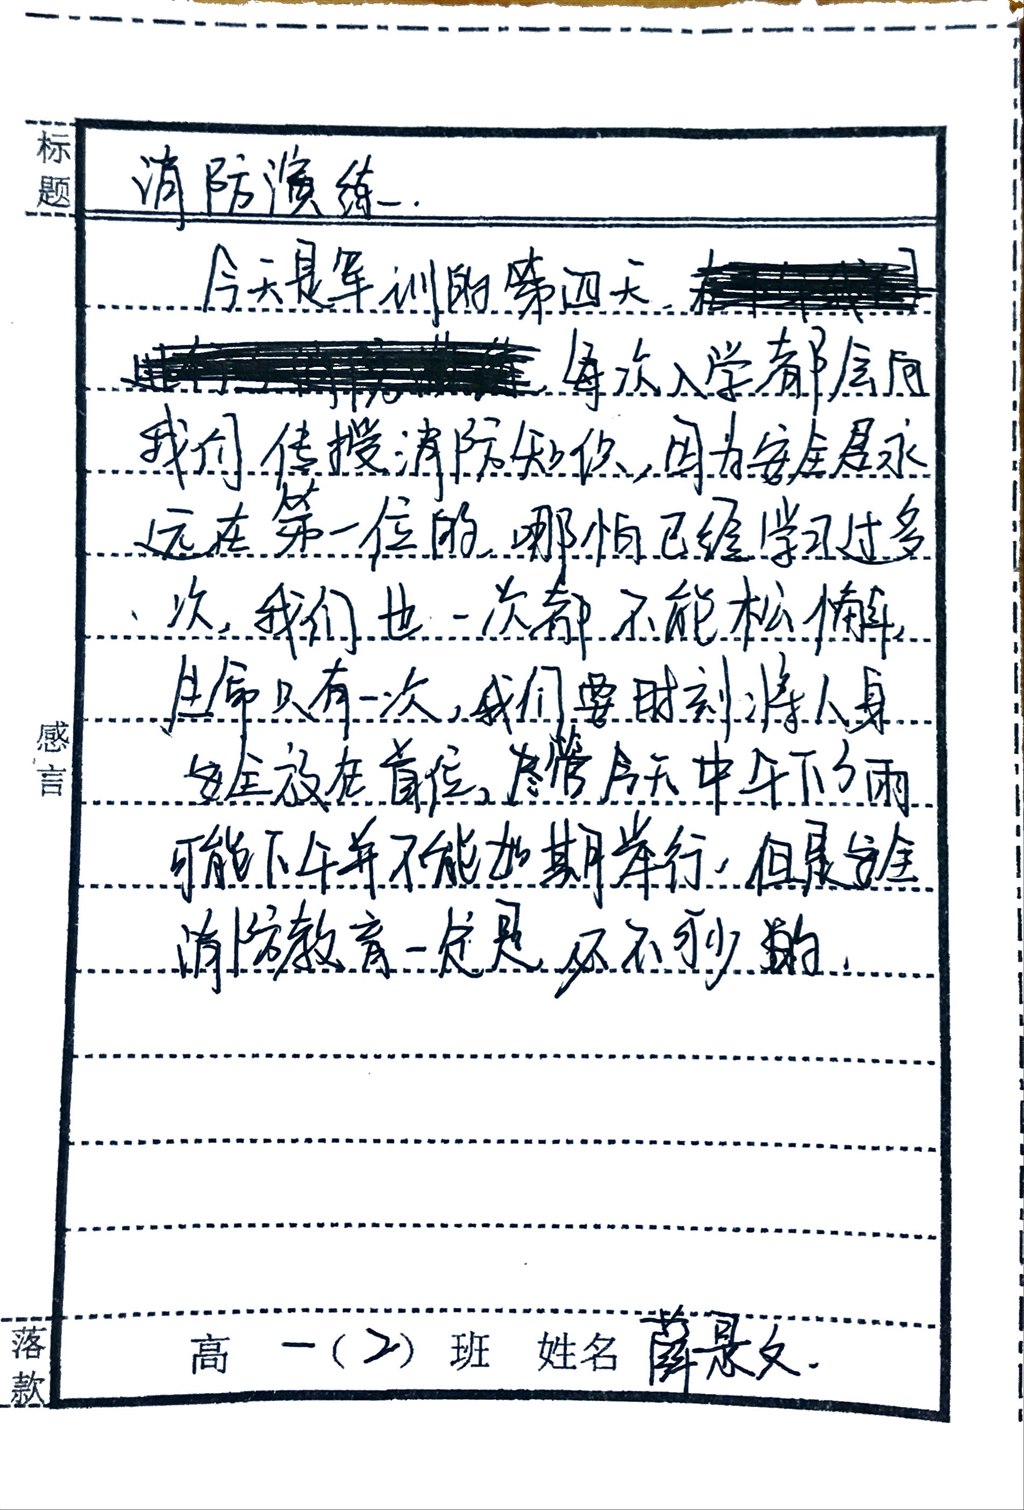 标题
消防演练.
今天是军训的第四天.
每次入学都会向
我们传授消防知识,因为安全是永
远在第一位的,哪怕已经学习过多
次,我们也一次都不能松懈,
生命只有一次,我们要时刻将人身
安全放在首位,尽管今天中午下了雨
可能下午并不能如期举行,但是安全
消防教育一定是必不可少的.
感言
落款
高一(2)班 姓名 薛景文.